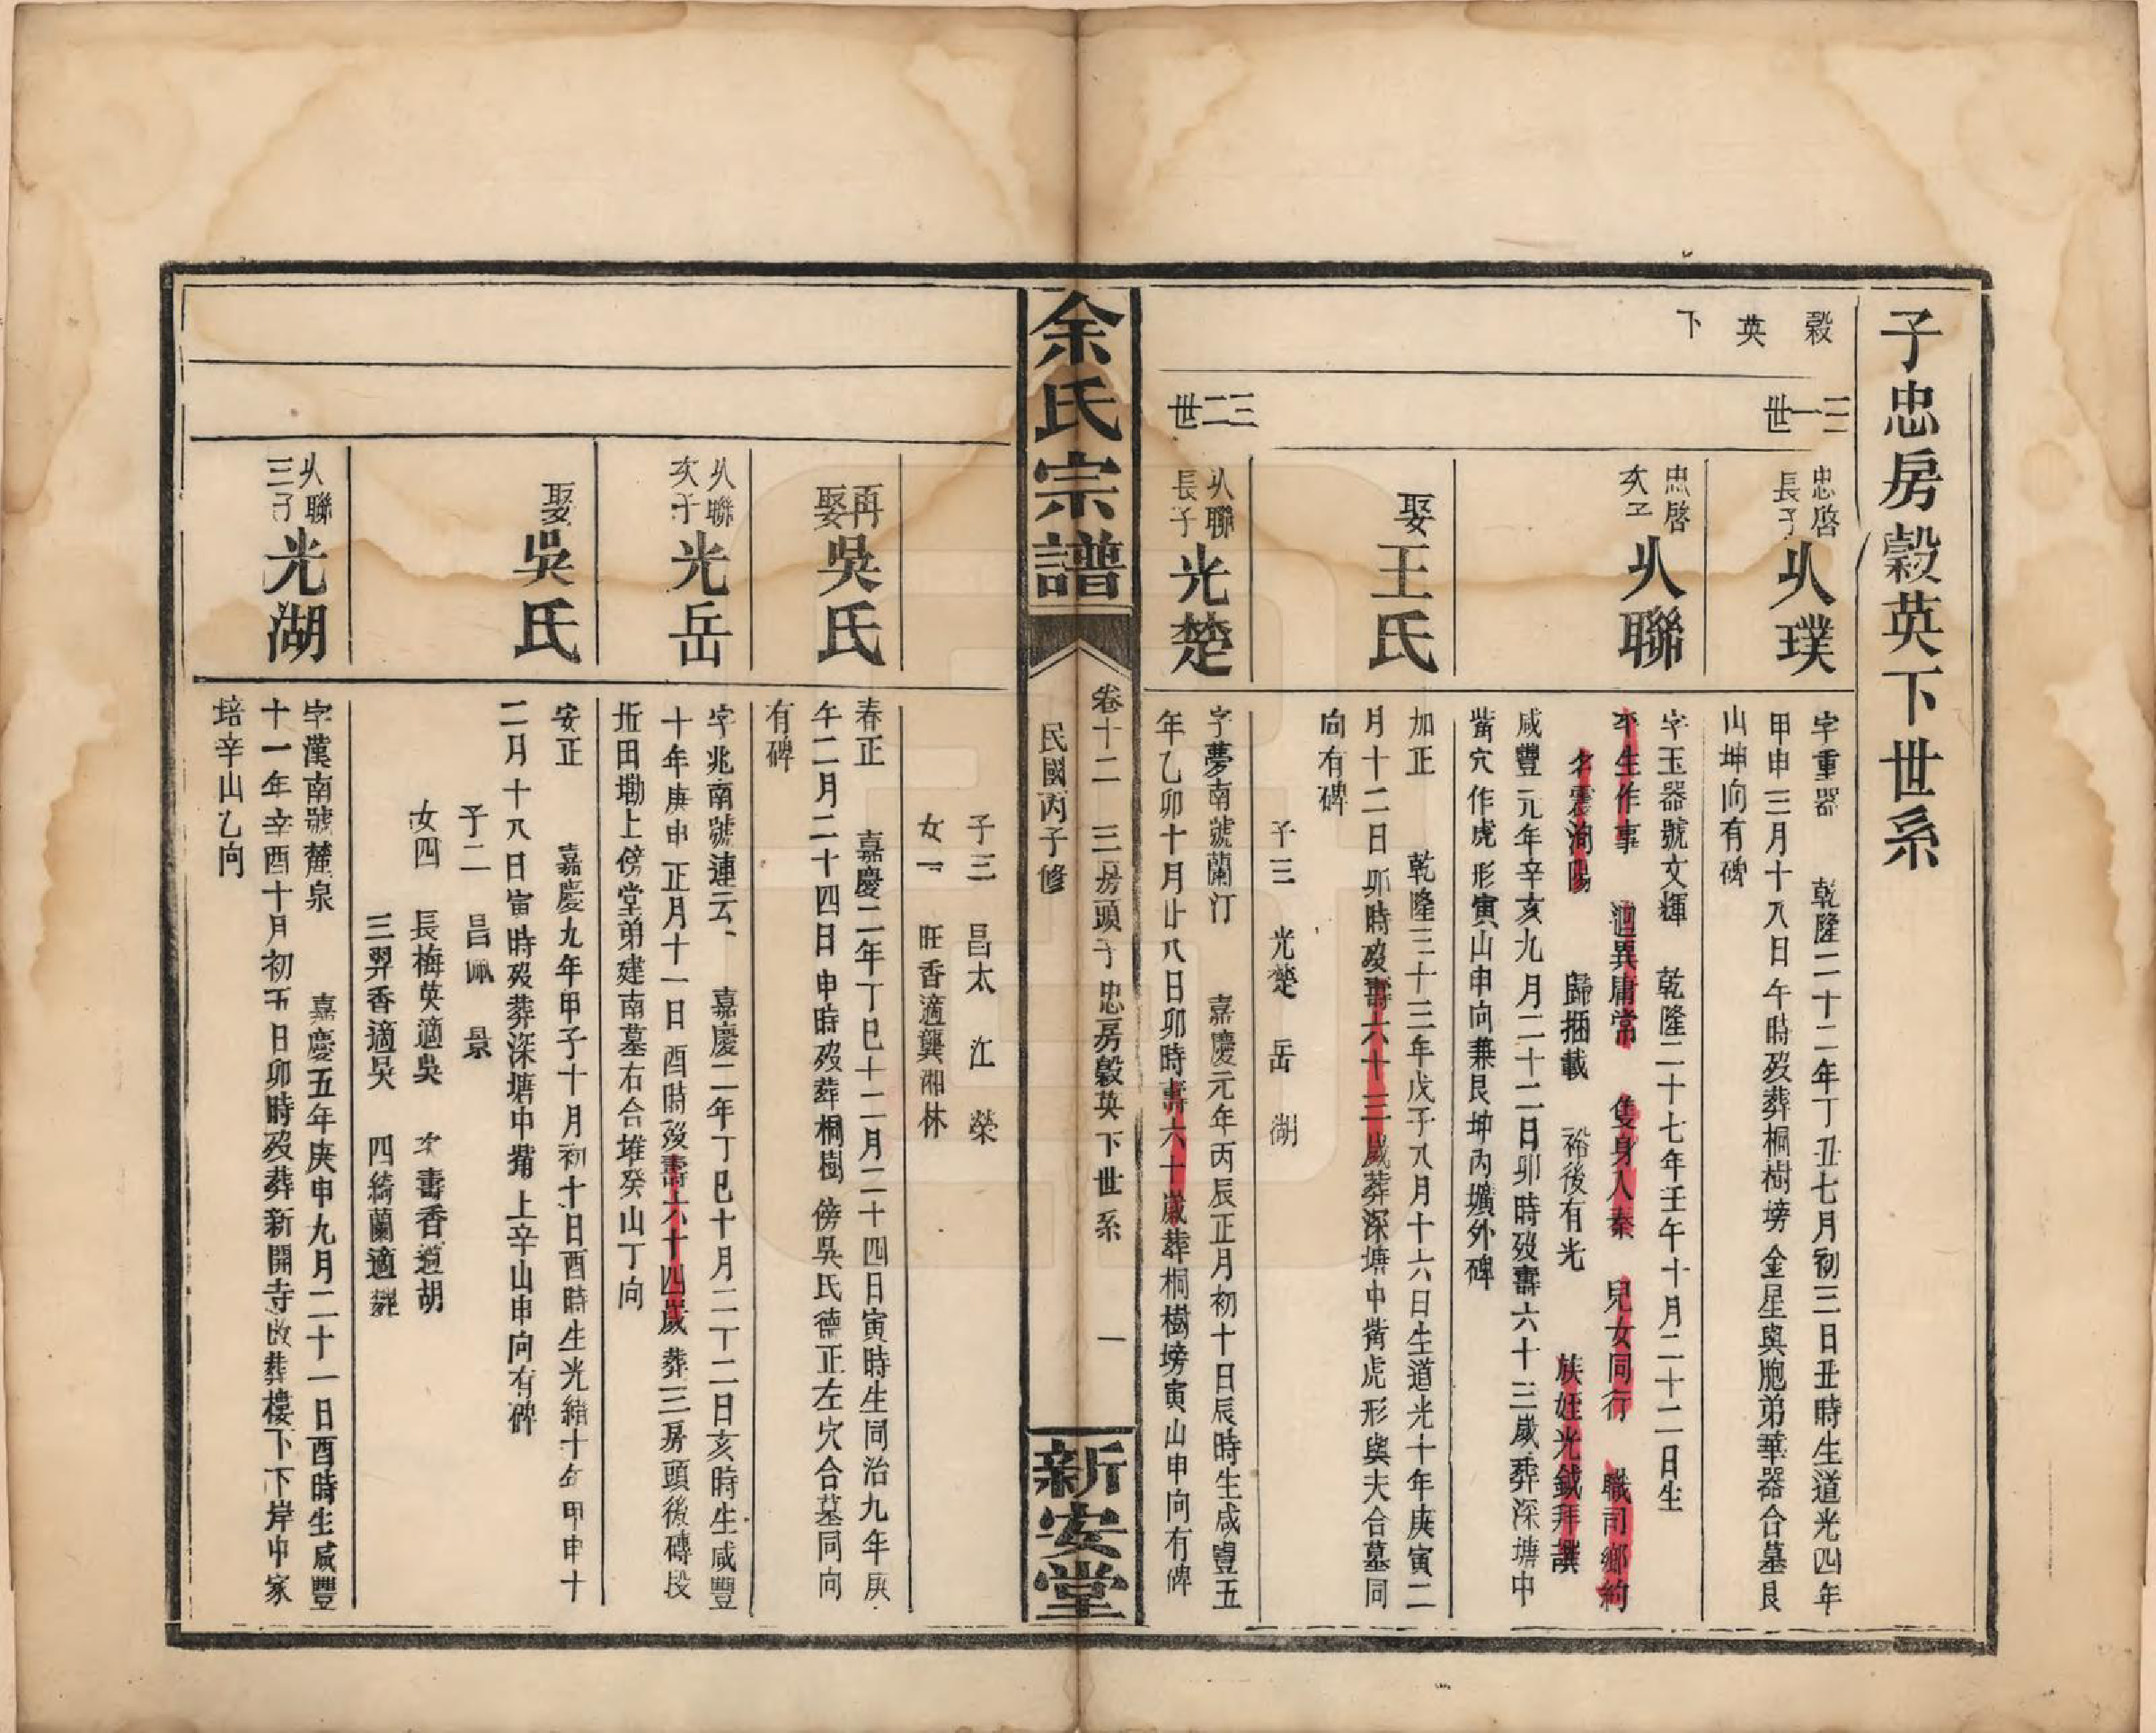 子忠房穀英下世系
穀英下
三一世
忠啓長子 㕥璞
字重器 乾隆二十二年丁丑七月初三日丑時生道光四年
甲申三月十八日午時歿葬桐樹塝金星與胞弟華器合墓艮
山坤向有碑
忠啓次子 㕥聯
字玉器號文煇 乾隆二十七年壬午十月二十二日生
平生作事 迥異庸常 隻身入秦 兒女同行 職司鄉約
名震洵陽 歸捆載 裕後有光 族姪光鉞拜譔
咸豐元年辛亥九月二十二日卯時歿壽六十三歲葬深塘中
嘴穴作虎形寅山申向兼艮坤內壙外碑
娶王氏
加正 乾隆三十三年戊子八月十六日生道光十年庚寅二
月十二日卯時歿壽六十三歲葬深塘中嘴虎形與夫合墓同
向有碑
子三 光楚 岳 湖
三二世
㕥聯長子 光楚
字夢南號蘭汀 嘉慶元年丙辰正月初十日辰時生咸豐五
年乙卯十月廿八日卯時壽六十歲葬桐樹塝寅山申向有碑
余氏宗譜
卷十二 三房頭子忠房穀英下世系 一
民國丙子修
新安堂
子三 昌太 江 榮
女一 旺香適龔湘林
再娶吳氏
春正 嘉慶二年丁巳十二月二十四日寅時生同治九年庚
午二月二十四日申時歿葬桐樹傍吳氏德正左穴合墓同向
有碑
㕥聯次子 光岳
字兆南號連云 嘉慶二年丁巳十月二十二日亥時生咸豐
十年庚申正月十一日酉時歿壽六十四歲葬三房頭後磚投
坵田墈上傍堂弟建南墓右合堆癸山丁向
娶吳氏
安正 嘉慶九年甲子十月初十日酉時生光緒十年甲申十
二月十八日寅時歿葬深塘中嘴上辛山申向有碑
子二 昌佩 景
女四 長梅英適吳 次壽香適胡
三羿香適吳 四綺蘭適
㕥聯三子 光湖
字漢南號麓泉 嘉慶五年庚申九月二十一日酉時生咸豐
十一年辛酉十月初五日卯時歿葬新開寺改葬樓下下岸中家
培辛山乙向